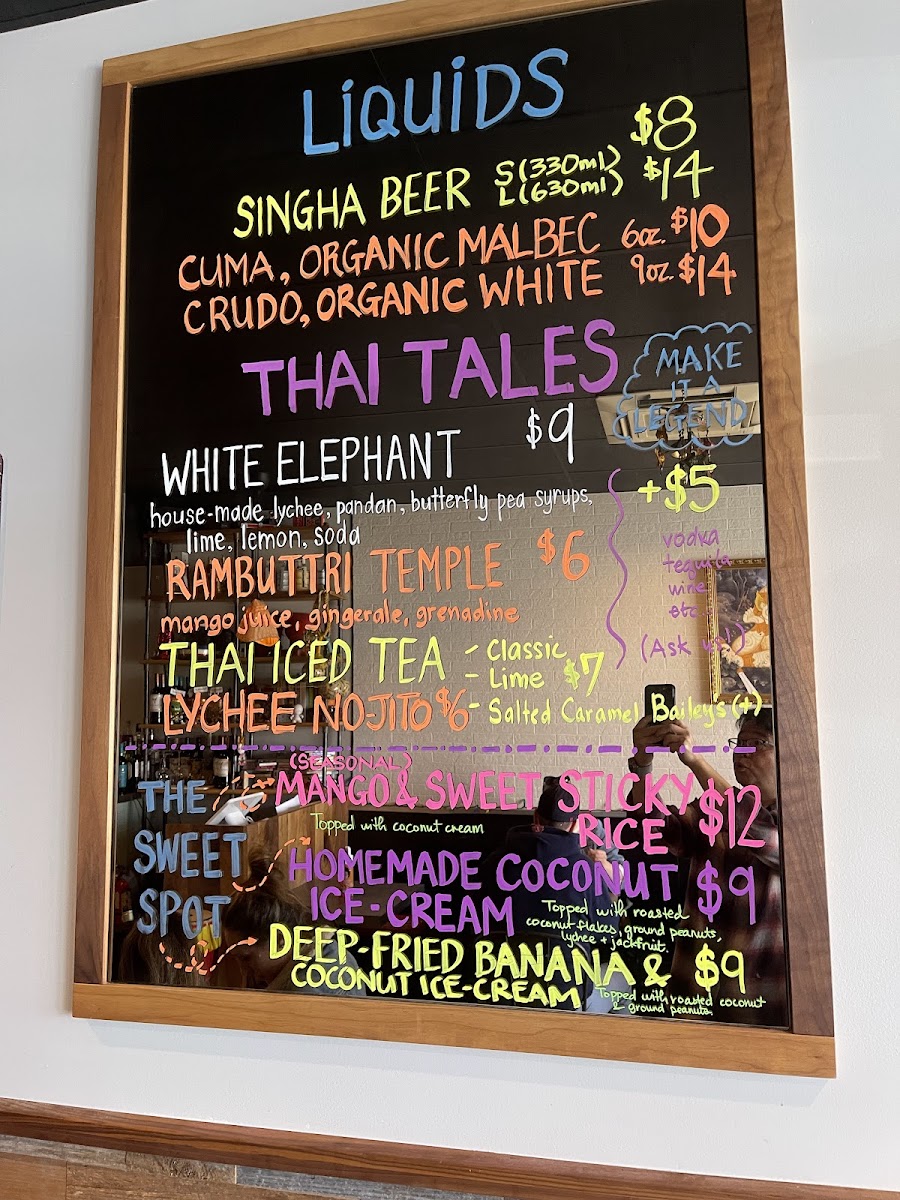 LiQUiDS
SINGHA BEER S(330ml) $8
L(630ml) $14
CUMA, ORGANIC MALBEC 6oz. $10
CRUDO, ORGANIC WHITE 9oz. $14
THAI TALES
MAKE
IT A
LEGEND
+$5
vodka
tequila
wine
etc.
(Ask us!)
WHITE ELEPHANT $9
house-made lychee, pandan, butterfly pea syrups,
lime, lemon, soda
RAMBUTTRI TEMPLE $6
mango juice, gingerale, grenadine
THAI ICED TEA - Classic
- Lime $7
LYCHEE NOJITO $6 - Salted Caramel Bailey's (+)
THE
SWEET
SPOT
(SEASONAL)
MANGO & SWEET STICKY
RICE $12
Topped with coconut cream
HOMEMADE COCONUT
ICE-CREAM $9
Topped with roasted
coconut flakes, ground peanuts,
lychee + jackfruit.
DEEP-FRIED BANANA & $9
COCONUT ICE-CREAM
Topped with roasted coconut
& ground peanuts